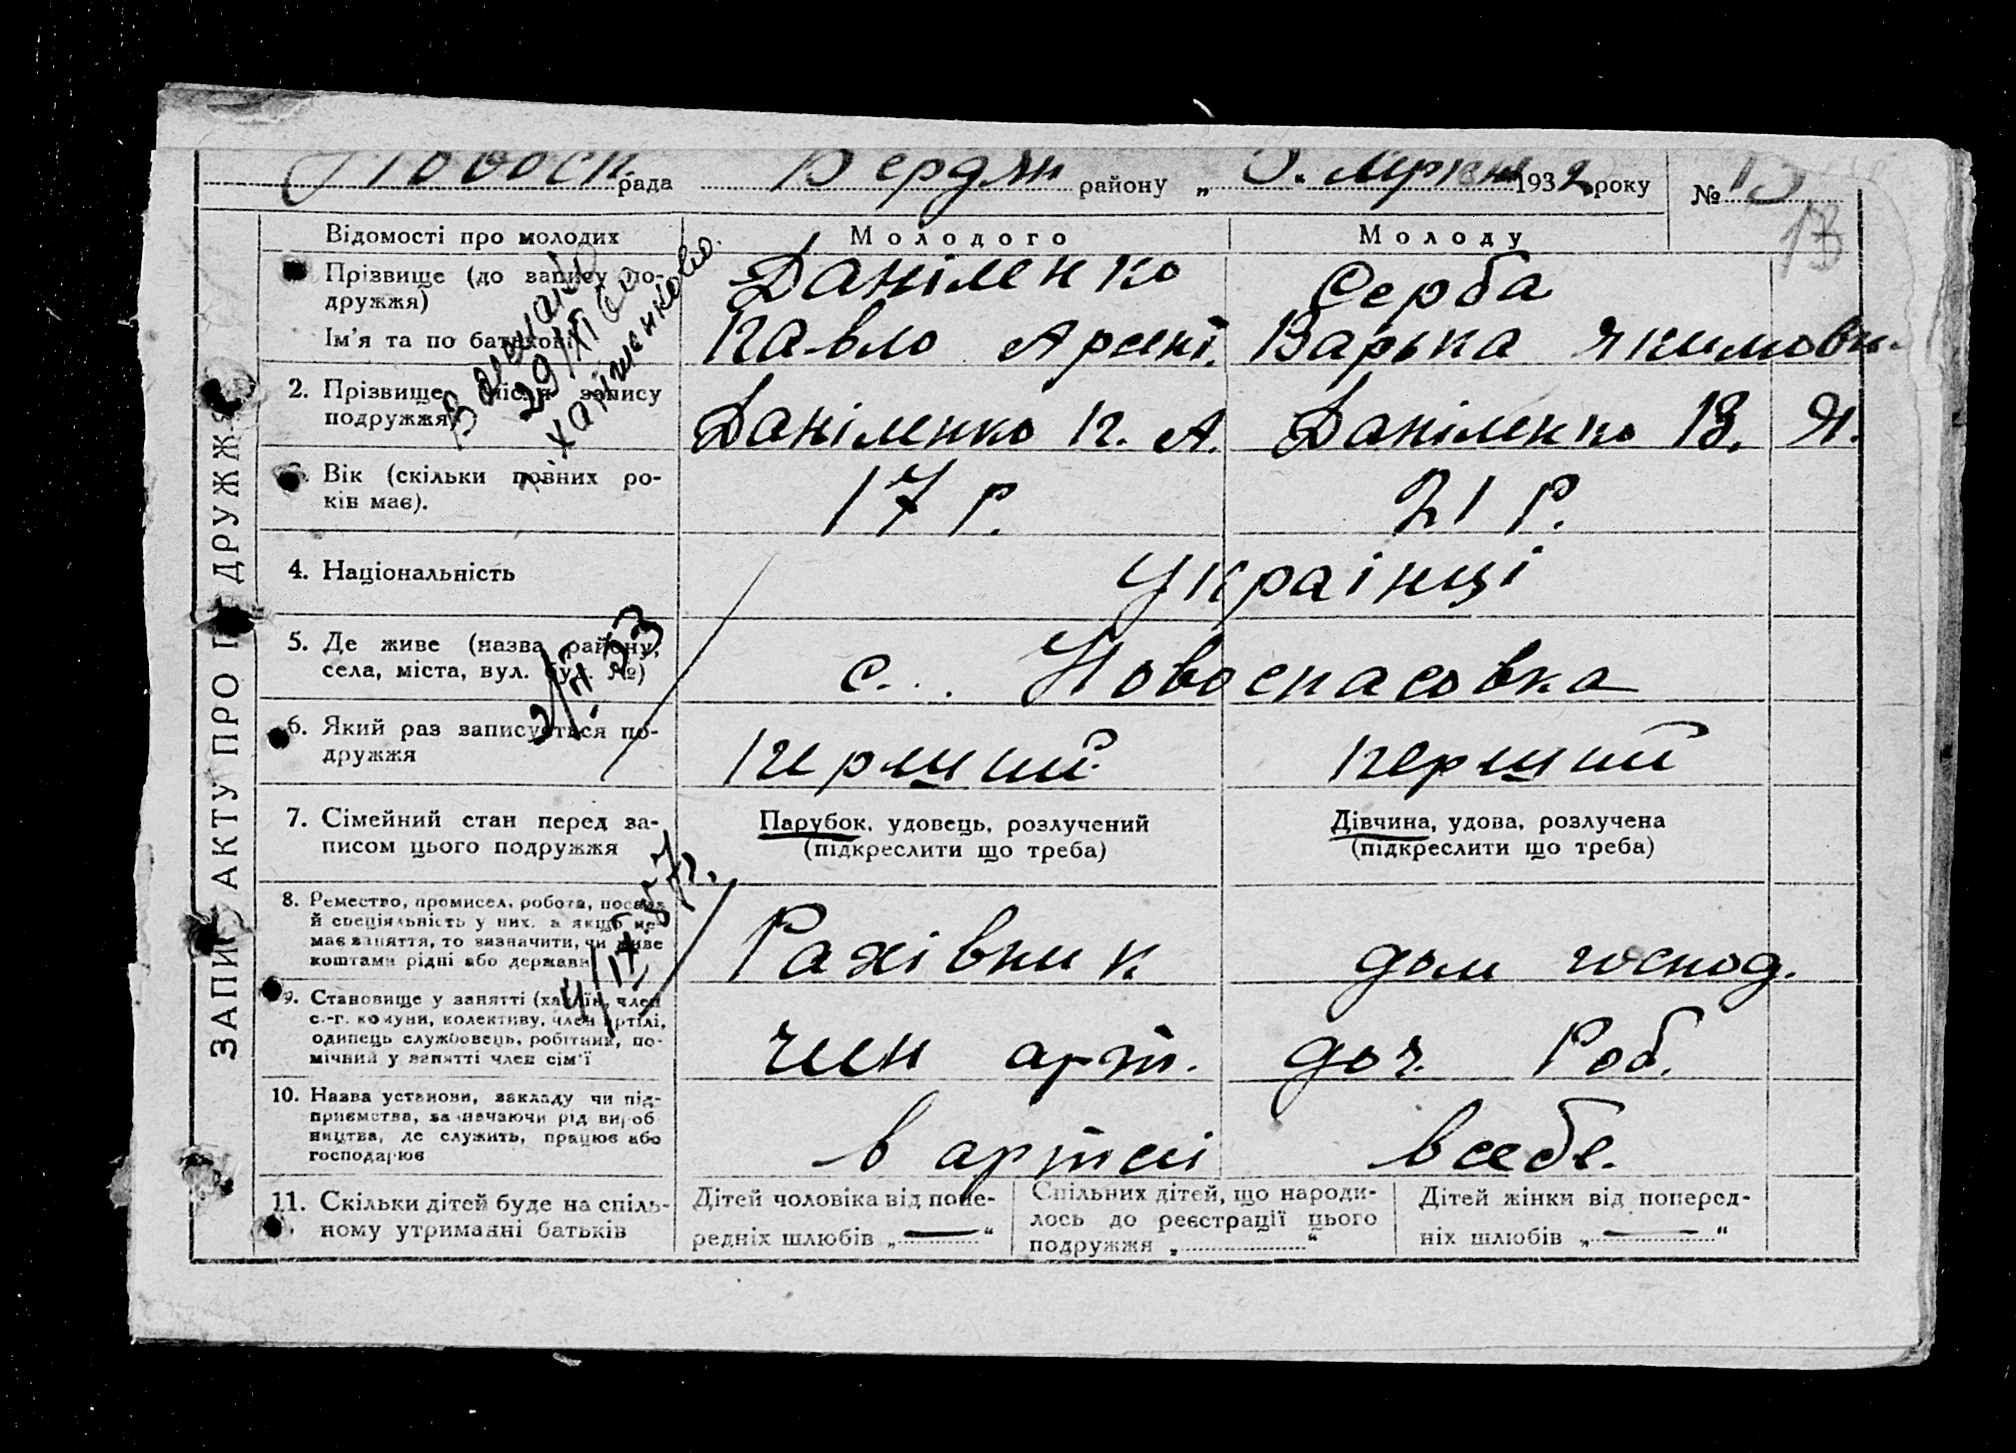 Новосп. рада Бердян району „ 1932 року № 13
13
Відомості про молодих Молодого Молоду
Прізвище (до запису по-
дружжя)
Даніленко Серба
Ім’я та по батькові
Павло Арсені. Варька Якимовн.
2. Прізвище після запису
подружжя
Даніленко П. А. Даніленко В. Я.
3. Вік (скільки повних ро-
ків має).
17 р. 21 р.
4. Національність
Українці
5. Де живе (назва району,
села, міста, вул. буд. №)
с. Новоспасовка
6. Який раз записується по-
дружжя
перший перший
7. Сімейний стан перед за-
писом цього подружжя
Парубок, удовець, розлучений
(підкреслити що треба)
Дівчина, удова, розлучена
(підкреслити що треба)
8. Ремество, промисел, робота, посада
й спеціяльність у них, а якщо не
має заняття, то зазначити, чи живе
коштами рідні або держави
Рахівник дом господ.
9. Становище у занятті (хазяїн, член
с.-г. комуни, колективу, член артілі,
одинець службовець, робітник, по-
мічний у занятті член сім’ї
член арт. доч. Роб.
10. Назва установи, закладу чи під-
приємства, зазначаючи рід вироб
ництва, де служить, працює або
господарює
в артелі в себе.
11. Скільки дітей буде на спіль-
ному утриманні батьків
Дітей чоловіка від попе-
редніх шлюбів „ — “
Спільних дітей, що народи-
лось до реєстрації цього
подружжя „ “
Дітей жінки від поперед-
ніх шлюбів „ — “
ЗАПИС АКТУ ПРО ПОДРУЖЖЯ